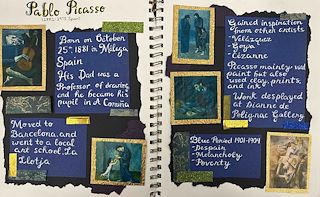 Pablo Picasso
(1881-1973 Spain)
Born on October
25th 1881 in Málaga,
Spain
His Dad was a
Professor of drawing
and he became his
pupil in A Coruña
Moved to
Barcelona, and
went to a local
art school, La
Llotja
Gained inspiration
from other artists
- Velázquez
- Goya
- Cézanne
Picasso mainly used
paint but also
used clay, prints,
and ink
Work displayed
at Dianne de
Polignac Gallery
Blue Period 1901-1904
- Despain
- Melancholy
- Poverty